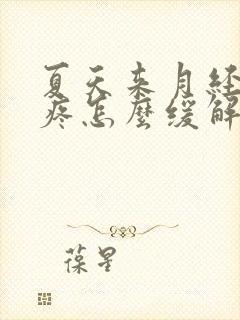 夏天来月经
疼怎麼缓解
葆星